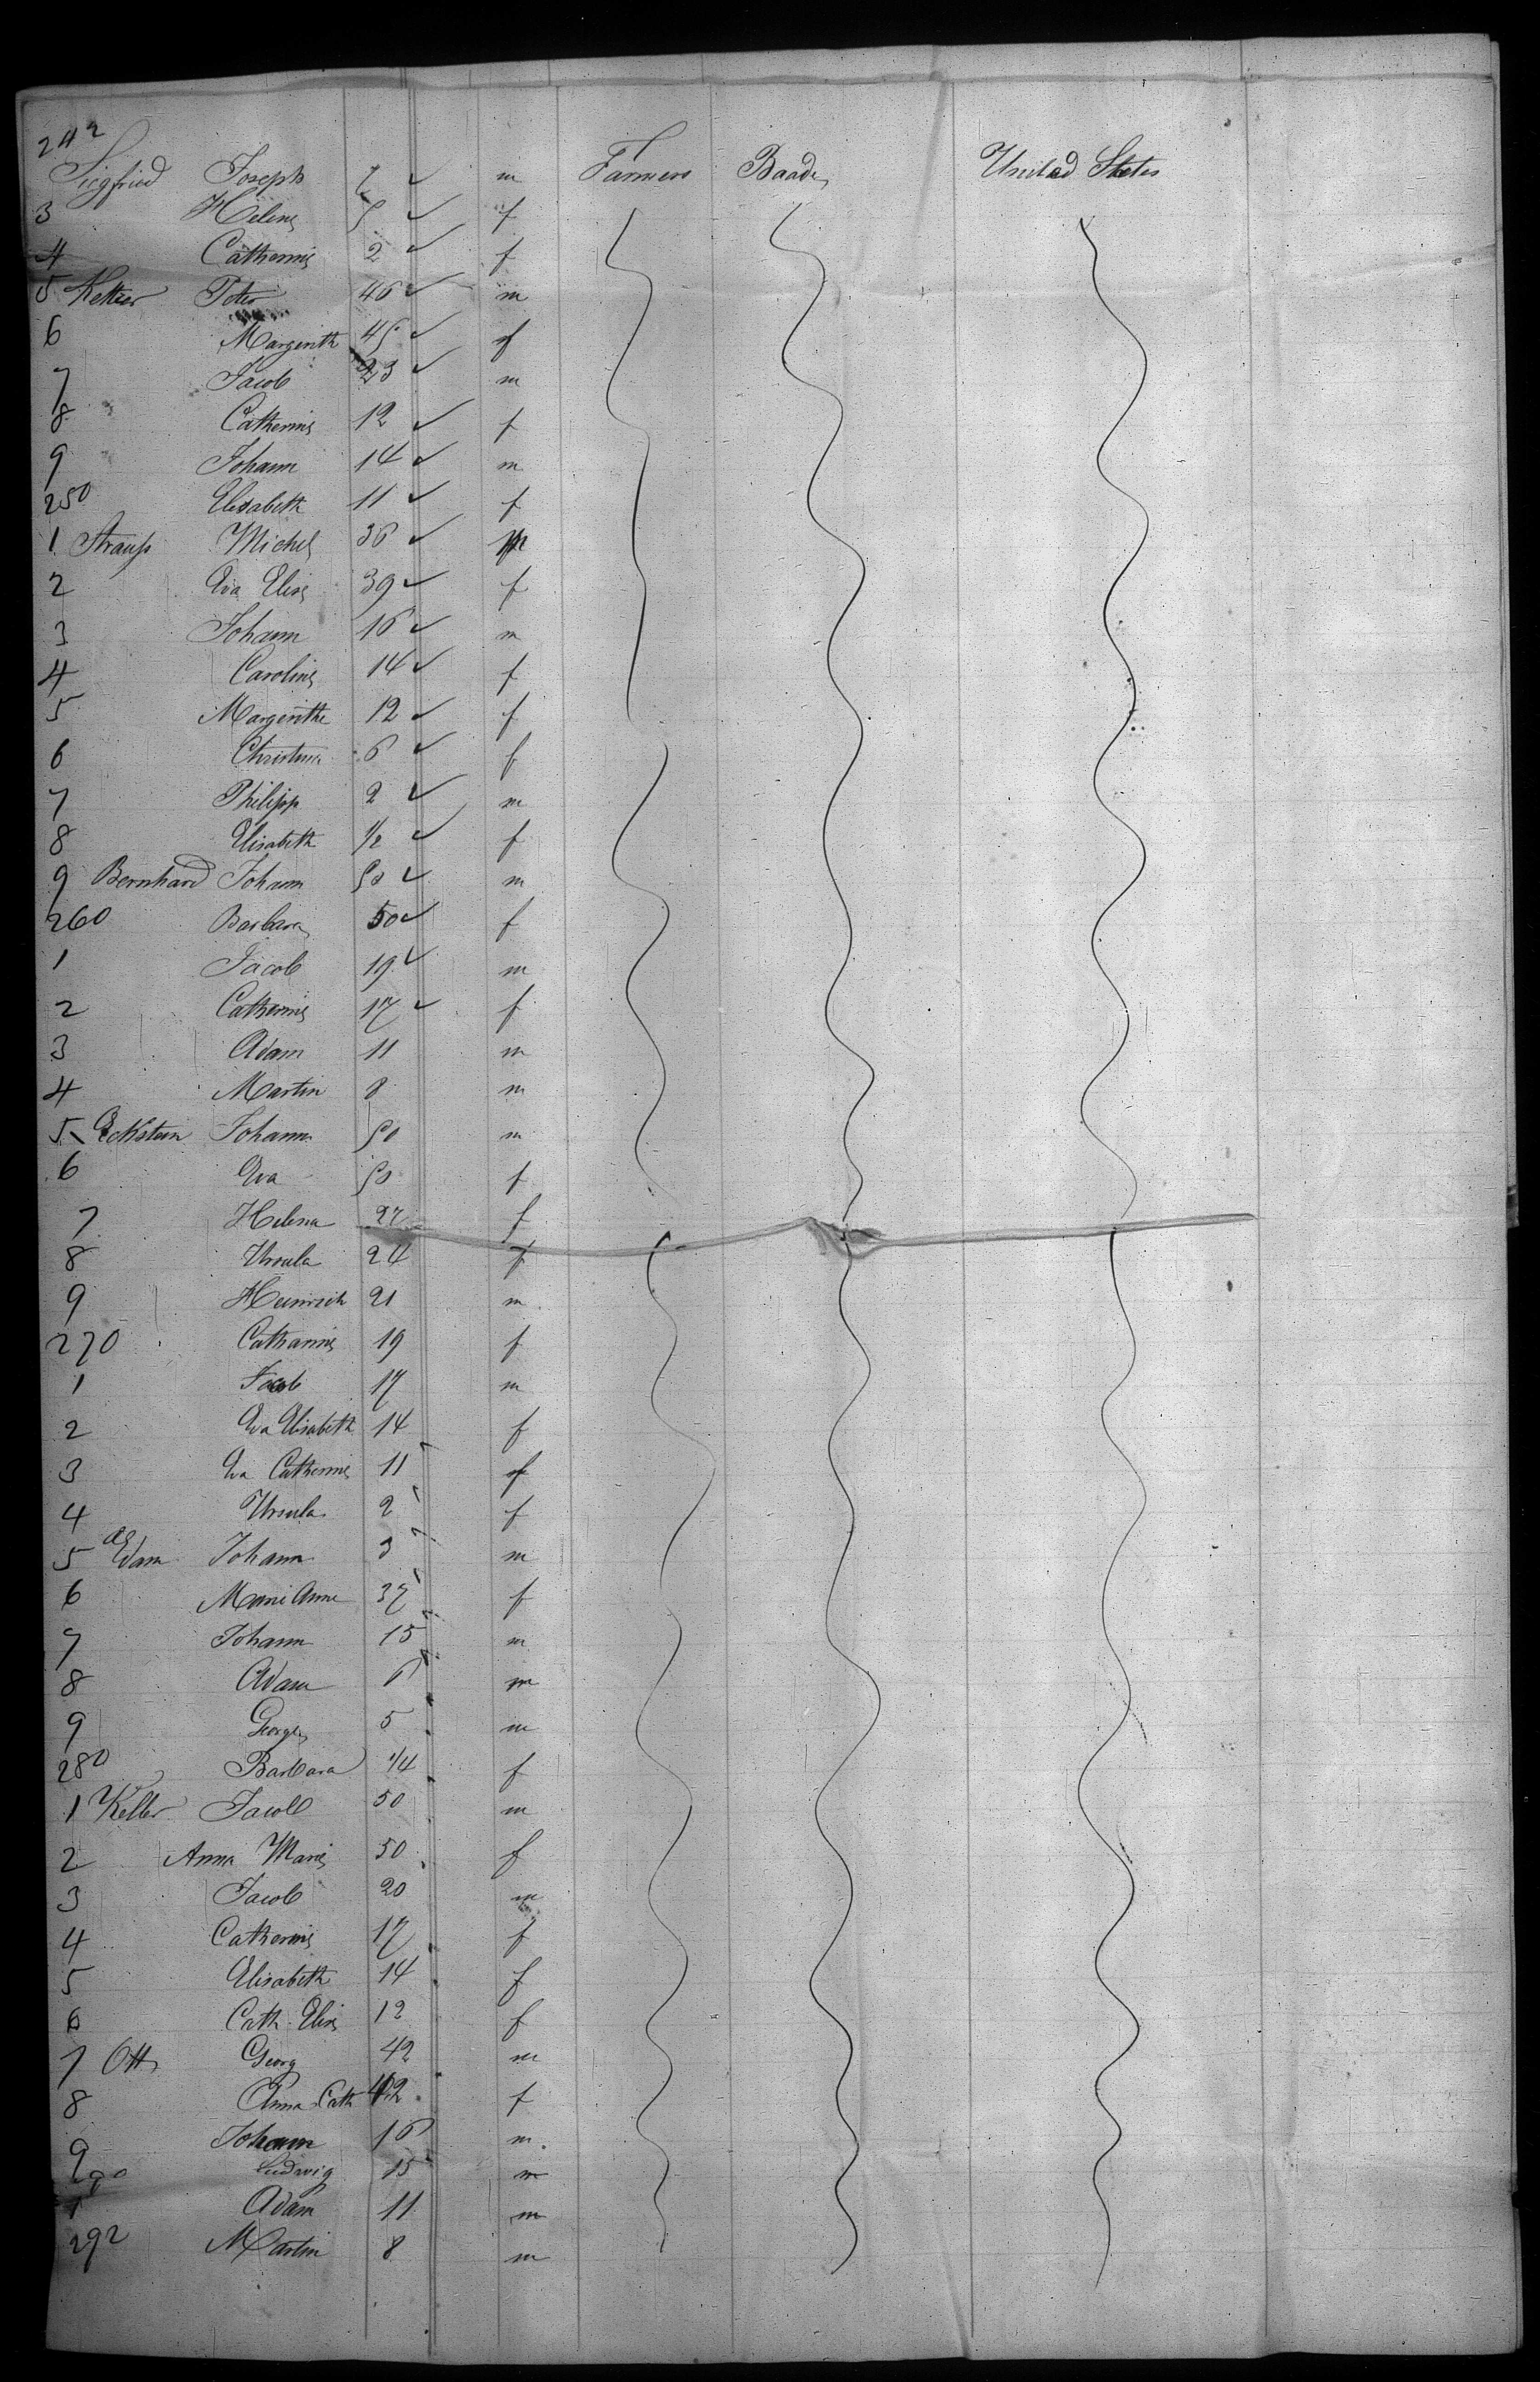 242
Siegfried Joseph 7 ✓ m Farmers Baade United States
3 Helene 5 ✓ f
4 Catherine 2 ✓ f
5 Peter 46 ✓ m
6 Margerith 45 ✓ f
7 Jacob 23 ✓ m
8 Catherine 12 ✓ f
9 Johann 14 ✓ m
250 Elisabeth 11 ✓ f
1 Strauß Michel 36 ✓ m
2 Eva Elise 39 ✓ f
3 Johann 16 ✓ m
4 Caroline 14 ✓ f
5 Margerithe 12 ✓ f
6 Christina 6 ✓ f
7 Philipp 2 ✓ m
8 Elisabeth 1/2 ✓ f
9 Bernhard Johann 50 ✓ m
260 Barbara 50 ✓ f
1 Jacob 19 ✓ m
2 Catherine 17 ✓ f
3 Adam 11 m
4 Martin 8 m
5 Eckstein Johann 50 m
6 Eva 50 f
7 Helena 27 f
8 Ursula 24 f
9 Heinrich 21 m
270 Catharine 19 f
1 Jacob 17 m
2 Eva Elisabeth 14 f
3 Eva Catherine 11 f
4 Ursula 2 f
5 Adam Johann m
6 Marie Anne 37 f
7 Johann 15 m
8 Adam 6 m
9 Georges 5 m
280 Barbara 1/4 f
1 Keller Jacob 50 m
2 Anna Marie 50 f
3 Jacob 20 m
4 Catherine 17 f
5 Elisabeth 14 f
6 Cath. Elise 12 f
7 Ott Georg 42 m
8 Anna Cath 42 f
9 Johann 16 m
290 Ludwig 15 m
1 Adam 11 m
292 Martin 8 m